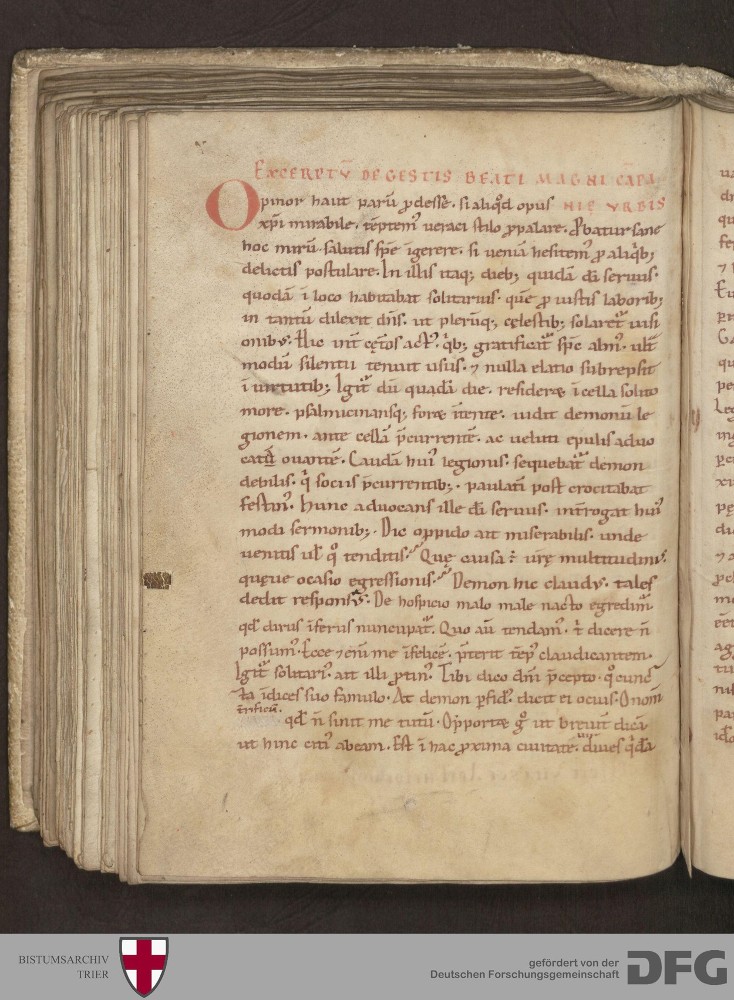 EXCERPTŪ DE GESTIS BEATI MAGNI CĀPA
Opinor haut parū ꝓdesse. si aliqd̄ opus NIĘ VRBIS
xp̄i mirabile. tēptem᾽ ueraci stilo ꝓpalare. Probatur sane
hoc mirū. salutis spē īgerere. si ueniā hesitem᾽ ꝓ aliqb;
delictis postulare. In illis itaq; dieb; quidā dī seruus.
quodā ī loco habitabat solitarius. quē ꝓ iustis laborib;
in tantū dilexit dn̄s. ut plerūq; cęlestib; solaret᾽ uisi
onib᾽. Hic int̄ cętos act᾽. qb; gratificat᾽ spc̄ alm᾽. ult̄
modū silentii tenuit usus. ⁊ nulla elatio subrepsit
ī uirtutib; Igit᾽ dū quadā die. resideræ ī cella solito
more. psalmicinansq; foræ ītente. uidit demoniū le
gionem. ante cellā p̄currentē. ac ueluti epulis aduo
catū ouantē. Caudā hui᾽ legionis. sequebat᾽ demon
debilis. q̇ sociis p̄currentib; paulatī post crocitabat
festin᾽. Hunc aduocans ille dī seruus. int̄rogat hui᾽
modi sermonib; Dic oppido ait miserabilis. unde
uenitis ul̄ qͦ tenditis. Quę causa ÷ uŕę multitudinis.
quęue ocasio egressionis. Demon hic claud᾽. tales
dedit respons᾽. De hospicio malo male nacto egredim᾽.
qd̄ dirus īferus nuncupat᾽. Quo aū tendam᾽. t̄ dicere n̄
possum᾽. Ecce ⁊ enī me īfelicē. p̄terit tēp᾽ claudicantem.
Igit᾽ solitari᾽. ait illi ꝓtin᾽. Tibi dico dn̄i p̄cepto. qͦ cunc
ta īdices suo famulo. At demon ꝑfid᾽. dicit ei ocius. O nom̄
t̄rificū.
qd̄ n̄ sinit me tutū. Oportæ gͦ ut breuit᾽ dicā
ut hinc citi᾽ abeam. Est ī hac ꝓxima ciuitate. diues qdā
BISTUMSARCHIV
TRIER
gefördert von der
Deutschen Forschungsgemeinschaft
DFG